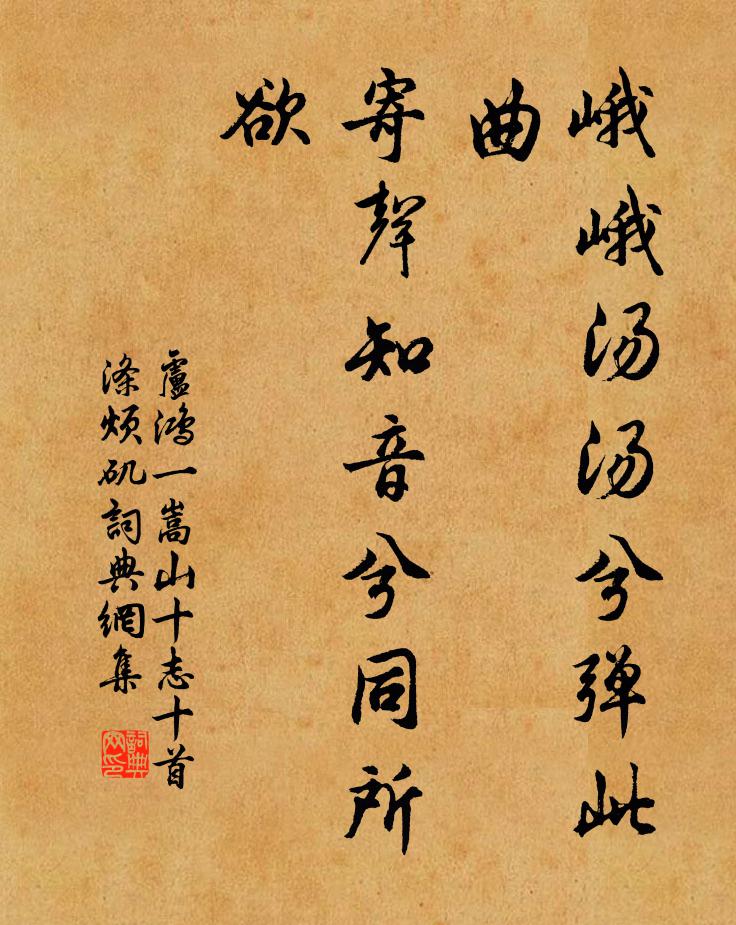 峨峨汤汤兮弹此
曲
寄聲知音兮同所
欲
盧鴻一嵩山十志十首
滌煩矶詞典網集
詞典网印